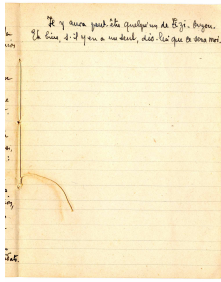 Il y aura peut-être quelqu'un de Tizi-Ouzou.
Eh bien, s'il y en a un seul, dis-lui que ce sera moi.